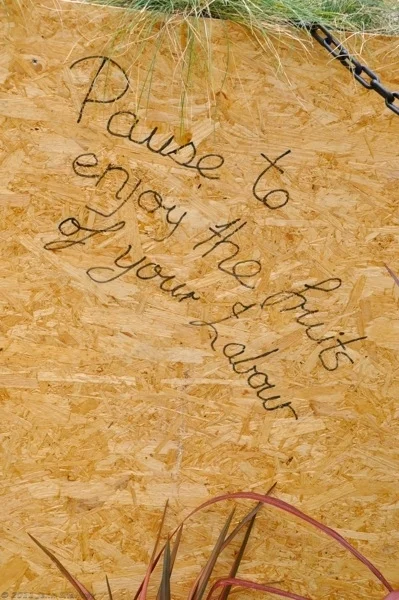 Pause to
enjoy the fruits
of your Labour